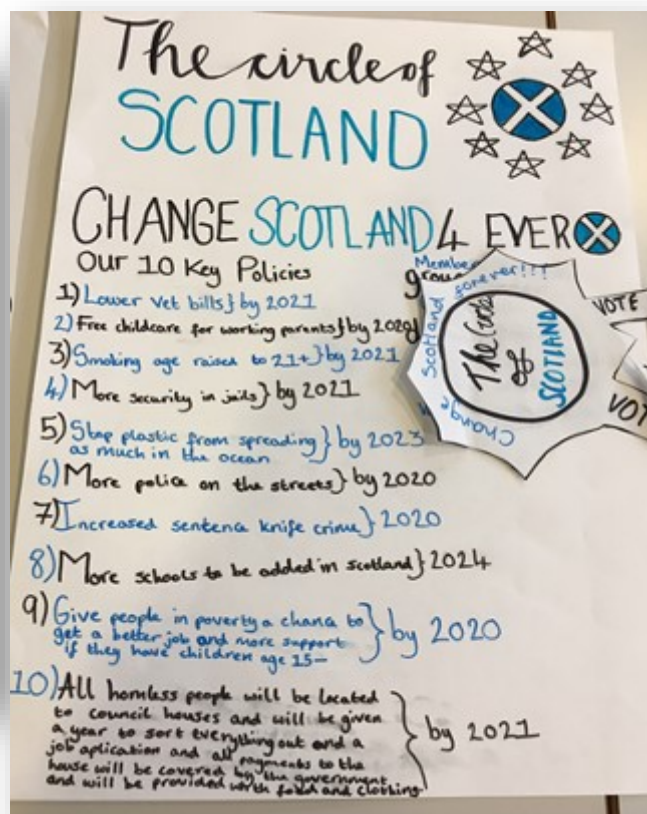 The circle of
SCOTLAND
CHANGE SCOTLAND 4 EVER
Our 10 Key Policies
1) Lower vet bills} by 2021
2) Free childcare for working parents} by 2020
3) Smoking age raised to 21+} by 2021
4) More security in jails} by 2021
5) Stop plastic from spreading
as much in the ocean } by 2023
6) More police on the streets} by 2020
7) Increased sentence knife crime} 2020
8) More schools to be added in scotland} 2024
9) Give people in poverty a chance to
get a better job and more support
if they have children age 15-
} by 2020
10) All homless people will be located
to council houses and will be given
a year to sort everything out and a
job aplication and all payments to the
house will be covered by the government
and will be provided with food and clothing
} by 2021
Member
grou
Change Scotland forever!!!
The Circle
of
SCOTLAND
VOTE
VOT